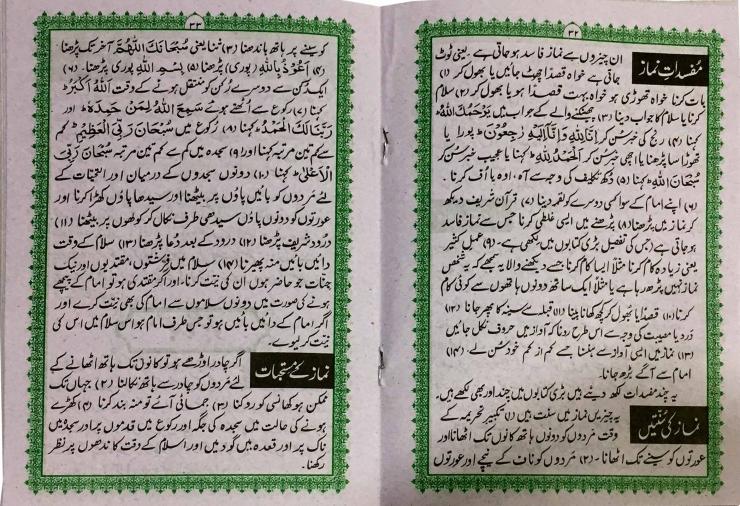 ۳۲
مفسداتِ نماز
ان چیزوں سے نماز فاسد ہو جاتی ہے۔ یعنی ٹوٹ
جاتی ہے خواہ قصداً چھٹ جائیں یا بھول کر (۱)
بات کرنا خواہ تھوڑی ہو خواہ بہت قصداً ہو یا بھول کر (۲) سلام
کرنا یا سلام کا جواب دینا (۳) چھینکنے والے کے جواب میں یَرْحَمُکَ اللہُ
کہنا (۴) رنج کی خبر سُن کر اِنَّا لِلّٰہِ وَاِنَّا اِلَیْہِ رٰجِعُوْنَ ط پورا یا
تھوڑا سا پڑھنا یا اچھی خبر سُن کر اَلْحَمْدُ لِلّٰہِ ط کہنا یا عجیب خبر سُن کر
سُبْحَانَ اللہِ ط کہنا (۵) دُکھ تکلیف کی وجہ سے آہ، اوہ یا اُف کرنا۔
(۶) اپنے امام کے سوا کسی دوسرے کو لقمہ دینا (۷) قرآن شریف دیکھ
کر نماز میں پڑھنا (۸) پڑھنے میں ایسی غلطی کرنا جس سے نماز فاسد
ہو جاتی ہے (جس کی تفصیل بڑی کتابوں میں لکھی ہے۔ (۹) عملِ کثیر
یعنی زیادہ کام کرنا مثلاً ایسا کام کرنا جسے دیکھنے والا یہ سمجھے کہ یہ شخص
نماز نہیں پڑھ رہا ہے یا مثلاً ایک ساتھ دونوں ہاتھوں سے کوئی کام
کرنا۔ (۱۰) قصداً یا بھول کر کچھ کھانا پینا (۱۱) قبلے سے سینہ کا پھر جانا۔ (۱۲)
درد یا مصیبت کی وجہ سے اس طرح رونا کہ آواز میں حروف نکل جائیں
(۱۳) نماز میں ایسی آواز سے ہنسنا جسے کم از کم خود سُن لے۔ (۱۴)
امام سے آگے بڑھ جانا۔
یہ چند مفسدات لکھ دیئے ہیں بڑی کتابوں میں چند اور بھی لکھے ہیں۔
نماز کی سنتیں
یہ چیزیں نماز میں سنت ہیں (۱) تکبیرِ تحریمہ کے
وقت مردوں کو دونوں ہاتھ کانوں تک اٹھانا اور
عورتوں کو سینے تک اٹھانا۔ (۲) مَردوں کو ناف کے نیچے اور عورتوں
۳۳
کو سینے پر ہاتھ باندھنا (۳) ثنا یعنی سُبْحَانَکَ اللّٰھُمَّ آخر تک پڑھنا
(۴) اَعُوْذُ بِاللّٰہِ (پوری) پڑھنا (۵) بِسْمِ اللّٰہِ پوری پڑھنا۔ (۶)
ایک رکن سے دوسرے رُکن کو منتقل ہونے کے وقت اَللّٰہُ اَکْبَرُ ط
کہنا (۷) رکوع سے اُٹھتے ہوئے سَمِعَ اللہُ لِمَنْ حَمِدَہٗ ط اور
رَبَّنَا لَکَ الْحَمْدُ ط کہنا (۸) رکوع میں سُبْحَانَ رَبِّیَ الْعَظِیْمِ ط کم
سے کم تین مرتبہ کہنا اور (۹) سجدہ میں کم سے کم تین مرتبہ سُبْحَانَ رَبِّیَ
الْاَعْلٰی ط کہنا (۱۰) دونوں سجدوں کے درمیان اور التحیات کے
لئے مَردوں کو بائیں پاؤں پر بیٹھنا اور سیدھا پاؤں کھڑا کرنا اور
عورتوں کو دونوں پاؤں سیدھی طرف نکال کر کولھوں پر بیٹھنا (۱۱)
درُود شریف پڑھنا (۱۲) درود کے بعد دُعا پڑھنا (۱۳) سلام کے وقت
دائیں بائیں منہ پھیرنا (۱۴) سلام میں فرشتوں، مقتدیوں اور نیک
جنات جو حاضر ہوں ان کی نیّت کرنا، اور اگر مقتدی ہو تو امام کے پیچھے
ہونے کی صورت میں دونوں سلاموں سے امام کی بھی نیّت کرے اور
اگر امام کے دائیں یا بائیں ہو تو جس طرف امام ہو اس سلام میں اس کی
نیّت کر لیوے۔
نماز کے مستحبات
اگر چادر اوڑھے ہو تو کانوں تک ہاتھ اٹھانے کے
لئے مَردوں کو چادر سے ہاتھ نکالنا (۲) جہاں تک
ممکن ہو کھانسی کو روکنا (۳) جمائی آئے تو منہ بند کرنا (۴) کھڑے
ہونے کی حالت میں سجدہ کی جگہ اور رکوع میں قدموں پر اور سجدہ میں
ناک پر اور قعدہ میں گود میں اور سلام کے وقت کاندھوں پر نظر
رکھنا۔